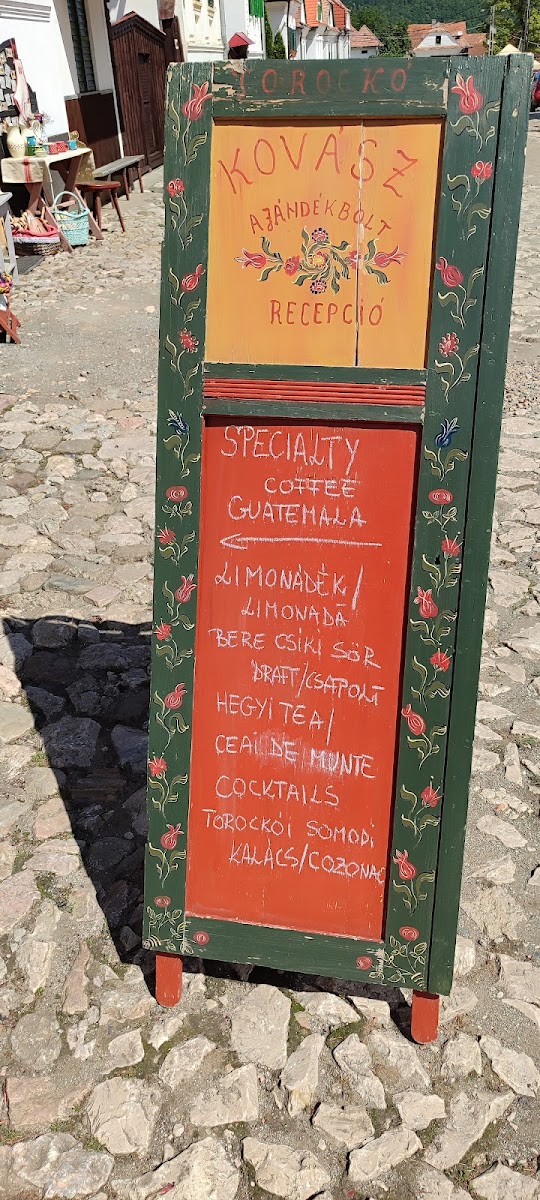 TOROCKÓ
KOVÁSZ
AJÁNDÉKBOLT
RECEPCIÓ
SPECIALTY
COFFEE
GUATEMALA
LIMONÁDÉK/
LIMONADĂ
BERE CSÍKI SÖR
DRAFT/CSAPOLT
HEGYI TEA/
CEAI DE MUNTE
COCKTAILS
TOROCKÓI SOMODI
KALÁCS/COZONAC